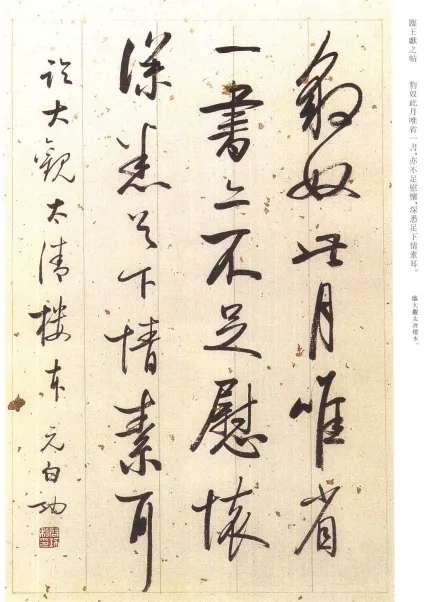 臨王獻之帖　豹奴此月唯省一書,亦不足慰懷,深悉足下情素耳。
臨大觀太清樓本。
豹奴此月唯省
一書亦不足慰懷
深悉足下情素耳
臨大觀太清樓本 元白功